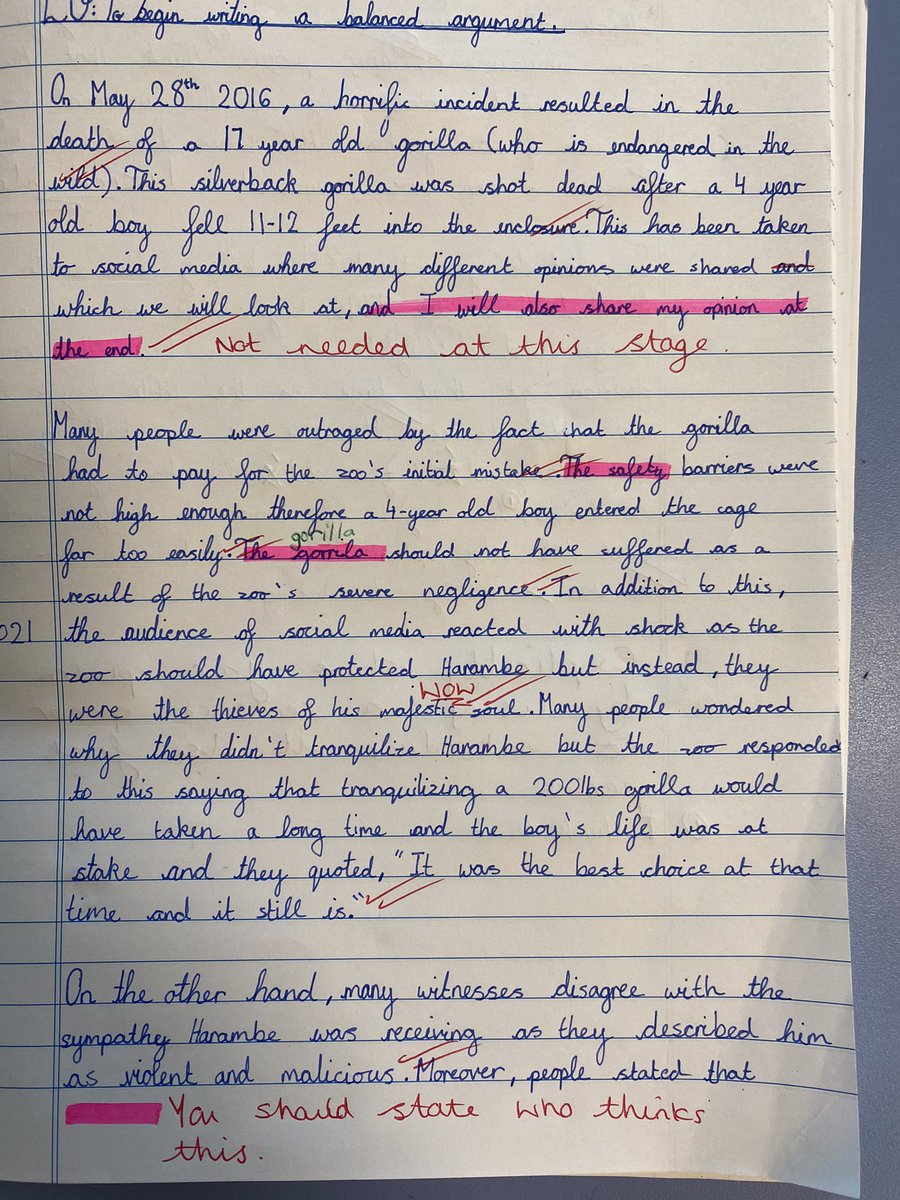 LO: To begin writing a balanced argument.
On May 28th 2016, a horrific incident resulted in the
death of a 17 year old gorilla (who is endangered in the
wild). This silverback gorilla was shot dead after a 4 year
old boy fell 11-12 feet into the enclosure. This has been taken
to social media where many different opinions were shared and
which we will look at, and I will also share my opinion at
the end. Not needed at this stage.
Many people were outraged by the fact that the gorilla
had to pay for the zoo's initial mistake. The safety barriers were
not high enough therefore a 4-year old boy entered the cage
gorilla
far too easily. The gorrila should not have suffered as a
result of the zoo's severe negligence. In addition to this,
021 the audience of social media reacted with shock as the
zoo should have protected Harambe but instead, they
WOW
were the thieves of his majestic soul. Many people wondered
why they didn't tranquilize Harambe but the zoo responded
to this saying that tranquilizing a 200lbs gorilla would
have taken a long time and the boy's life was at
stake and they quoted, "It was the best choice at that
time and it still is."
On the other hand, many witnesses disagree with the
sympathy Harambe was receiving as they described him
as violent and malicious. Moreover, people stated that
You should state who thinks
this.